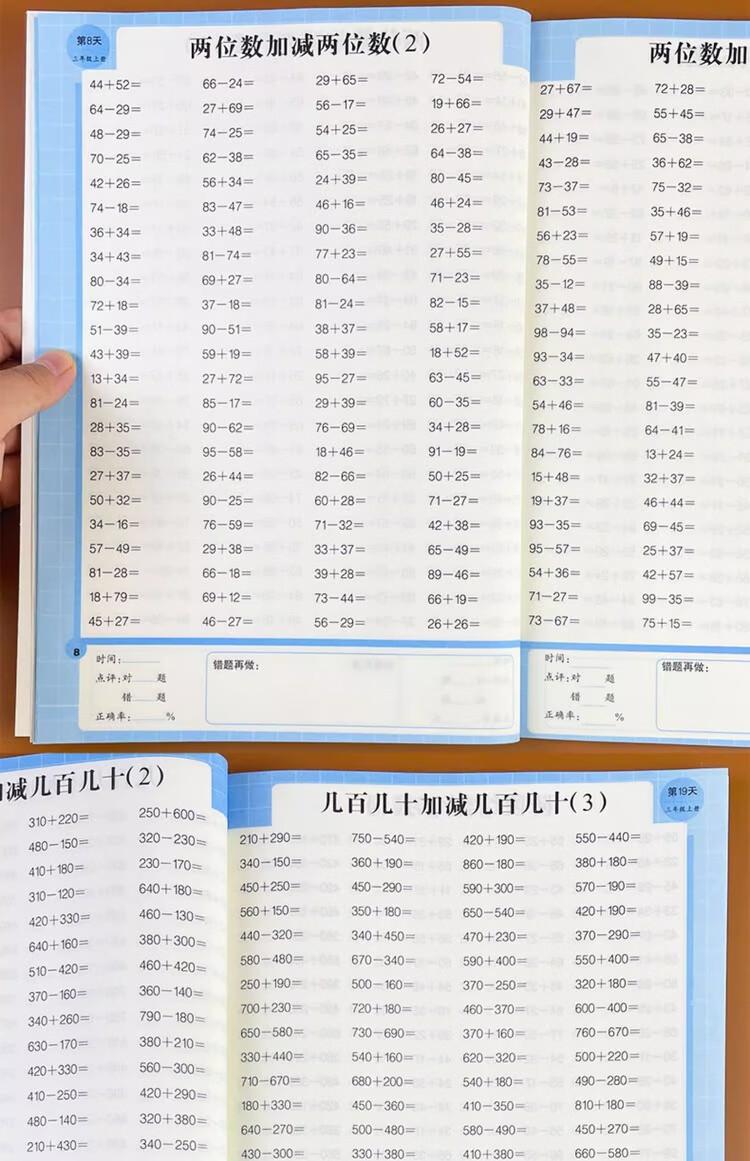 第8天
三年级上册
两位数加减两位数(2)
44+52= 66-24= 29+65= 72-54=
64-29= 27+69= 56-17= 19+66=
48-29= 74-25= 54+25= 26+27=
70-25= 62-38= 65-35= 64-38=
42+26= 56+34= 24+39= 80-45=
74-18= 83-47= 46+16= 46+24=
36+34= 33+48= 90-36= 35-28=
34+43= 81-74= 77+23= 27+55=
80-34= 69+27= 80-64= 71-23=
72+18= 37-18= 81-24= 82-15=
51-39= 90-51= 38+37= 58+17=
43+39= 59+19= 58+39= 18+52=
13+34= 27+72= 95-27= 63-45=
81-24= 85-17= 29+39= 60-35=
28+35= 90-62= 76-69= 34+28=
83-35= 95-58= 18+46= 91-19=
27+37= 26+44= 82-66= 50+25=
50+32= 90-25= 60+28= 71-27=
34-16= 76-59= 71-32= 42+38=
57-49= 29+38= 33+37= 65-49=
81-28= 66-18= 39+28= 89-46=
18+79= 69+12= 73-44= 66+19=
45+27= 46-27= 56-29= 26+26=
8
时间:
点评:对 题
错 题
正确率: %
错题再做:
两位数加
27+67= 72+28=
29+47= 55+45=
44+19= 65-38=
43-28= 36+62=
73-37= 75-32=
81-53= 35+46=
56+23= 57+19=
78-55= 49+15=
35-12= 88-39=
37+48= 28+65=
98-94= 35-23=
93-34= 47+40=
63-33= 55-47=
54+46= 81-39=
78+16= 64-41=
84-76= 13+24=
15+48= 32+37=
19+37= 46+44=
93-35= 69-45=
95-57= 25+37=
54+36= 42+57=
71-27= 99-35=
73-67= 75+15=
时间:
点评:对 题
错 题
正确率: %
错题再做:
减几百几十(2)
310+220= 250+600=
480-150= 320-230=
410+180= 230-170=
310-120= 640+180=
420+330= 460-130=
640+160= 380+300=
510-420= 460+420=
370-160= 360-140=
340+260= 790-180=
630-170= 380+210=
420+330= 560-300=
410-250= 420+290=
480-140= 320+380=
210+430= 340-250=
几百几十加减几百几十(3)
第19天
三年级上册
210+290= 750-540= 420+190= 550-440=
340-150= 360+190= 860-180= 380+180=
450+250= 450-290= 590+300= 570-190=
560+150= 350+180= 650-540= 420+190=
440-320= 340+450= 470+230= 370-290=
580-480= 670-340= 590+400= 550+400=
250+190= 500-160= 370-250= 320+180=
700+230= 720+180= 460-370= 600-400=
650-580= 730-690= 370+160= 760-670=
330+440= 540+160= 620-320= 500+220=
710-670= 680+200= 540+180= 490-280=
180+330= 450-360= 410-350= 810+180=
640-270= 500-480= 580-490= 450+270=
430-300= 330+380= 410+380= 660-580=